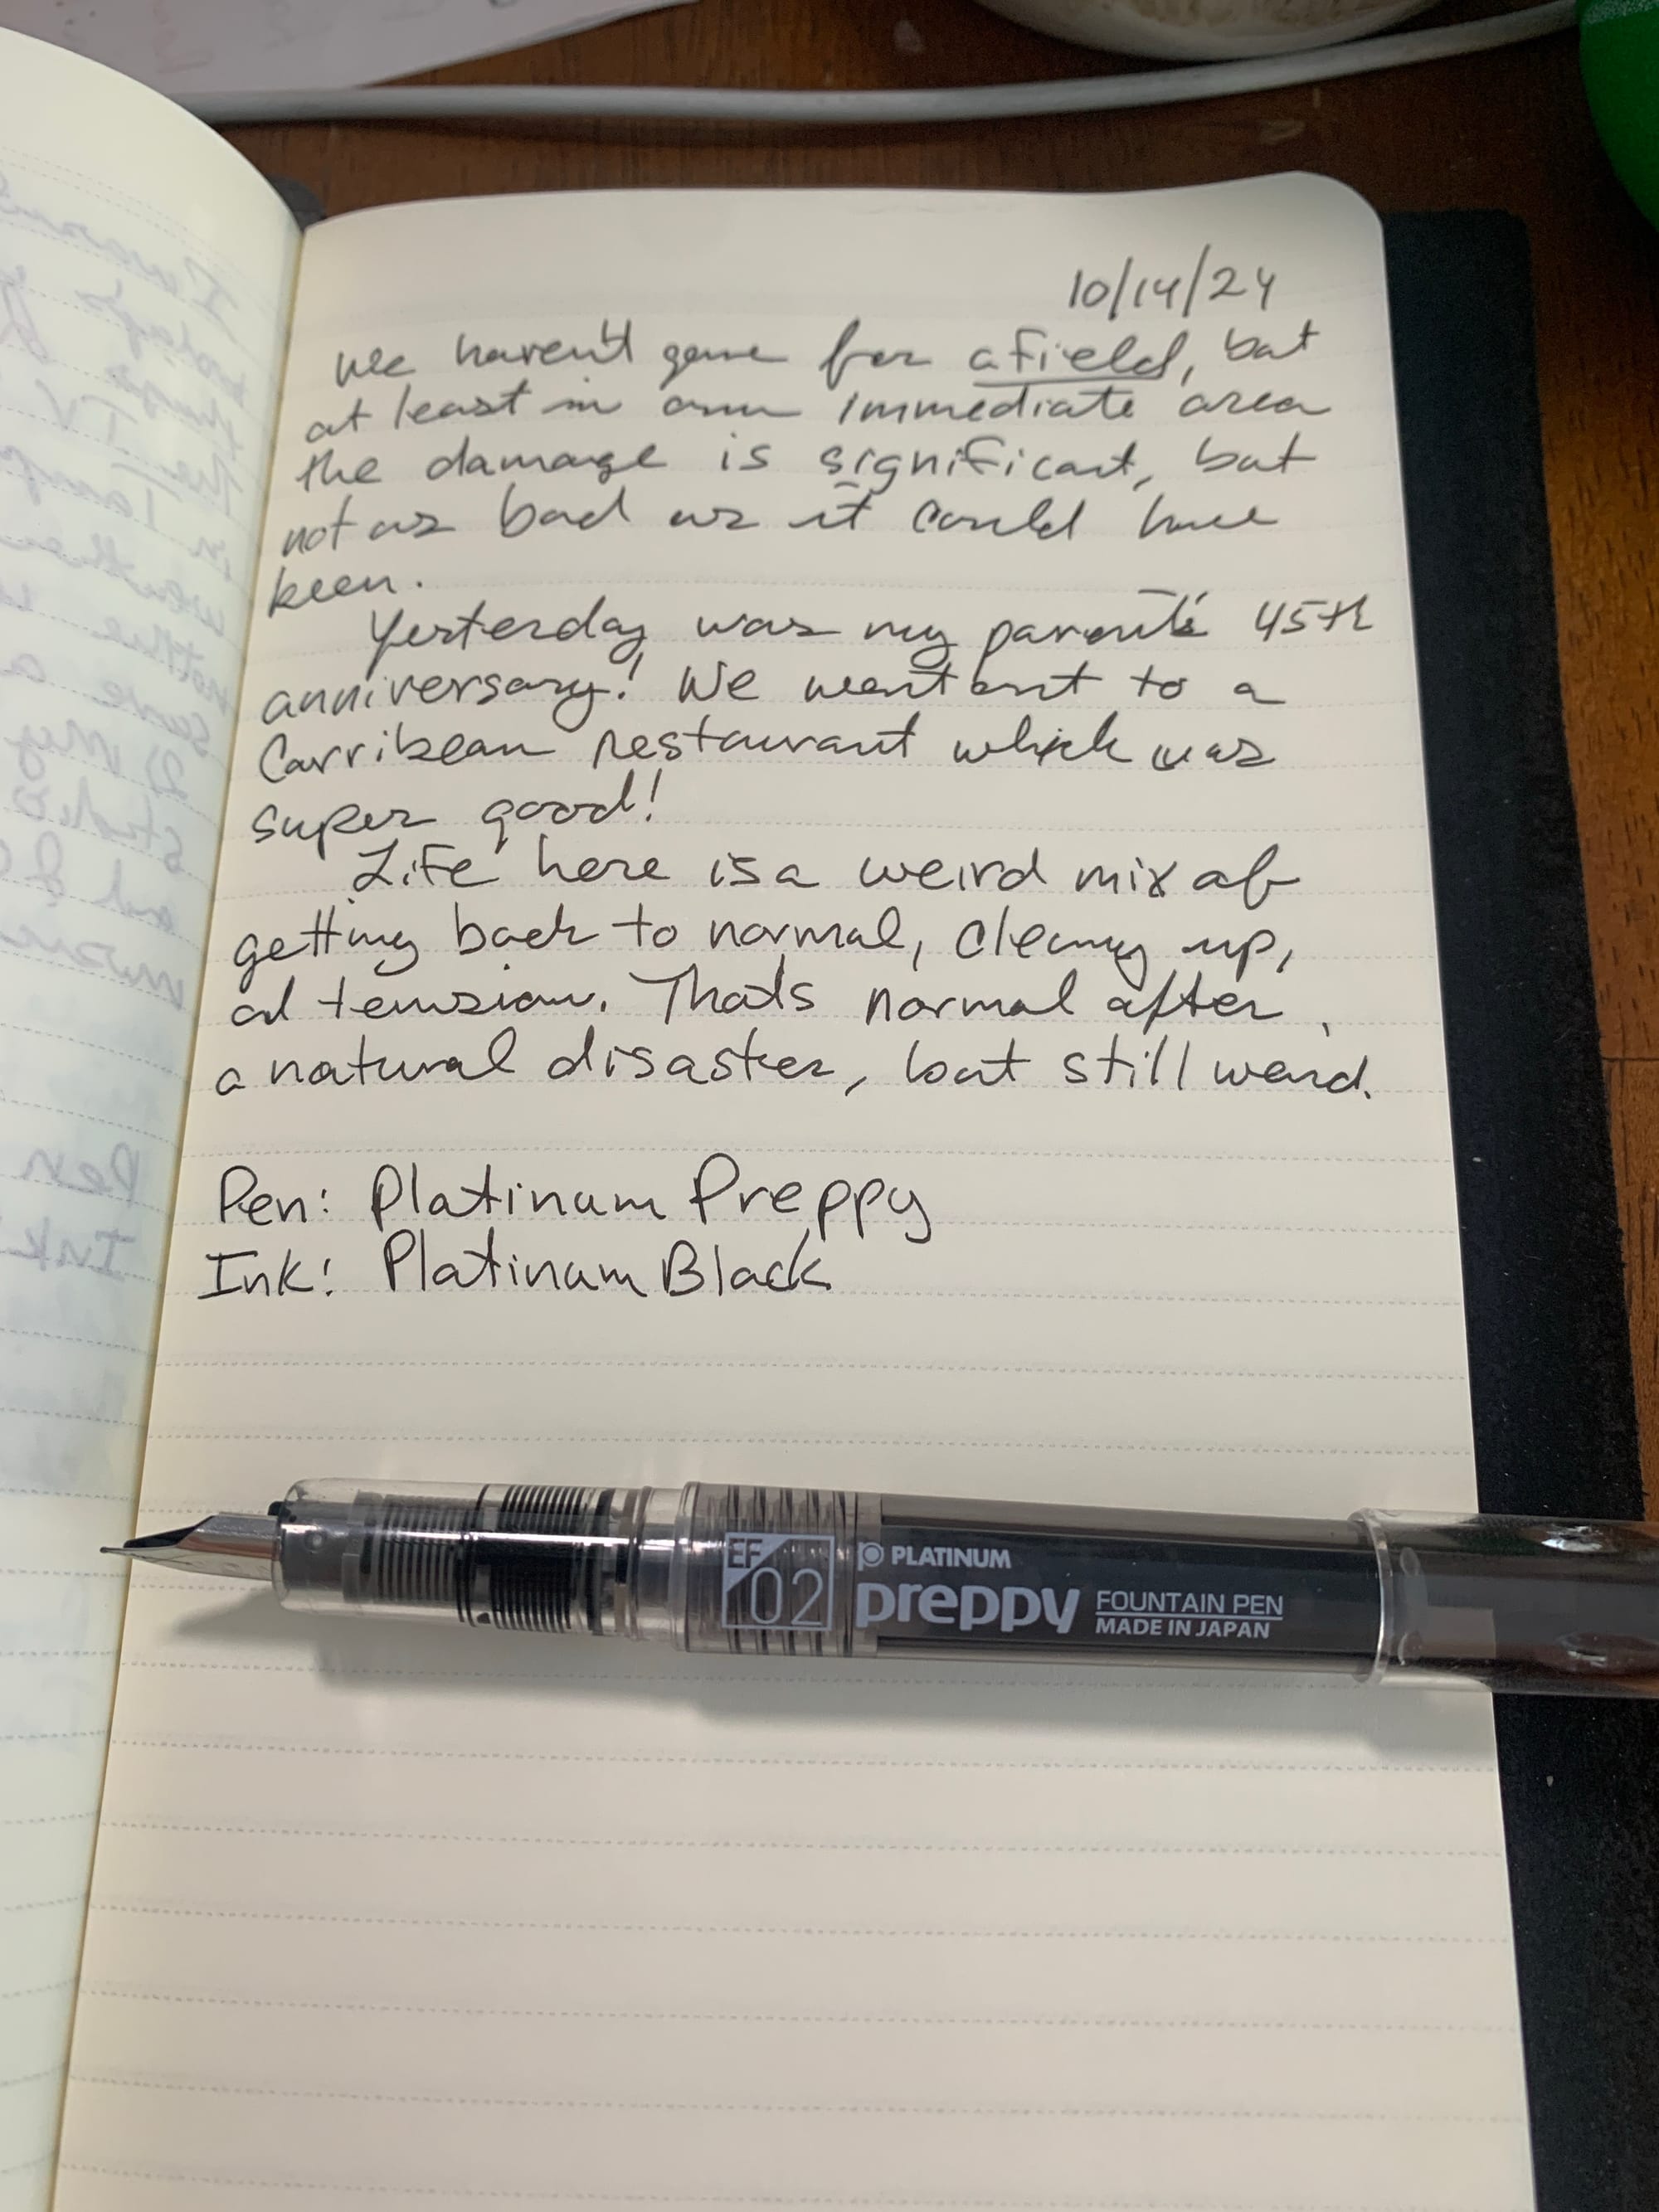 10/14/24
We haven't gone far afield, but
at least in our immediate area
the damage is significant, but
not as bad as it could have
been.
Yesterday was my parents' 45th
anniversary! We went out to a
Carribean restaurant which was
super good!
Life here is a weird mix of
getting back to normal, cleaning up,
ad tension. That's normal after
a natural disaster, but still weird.
Pen: Platinum Preppy
Ink: Platinum Black
EF
02
PLATINUM
preppy
FOUNTAIN PEN
MADE IN JAPAN